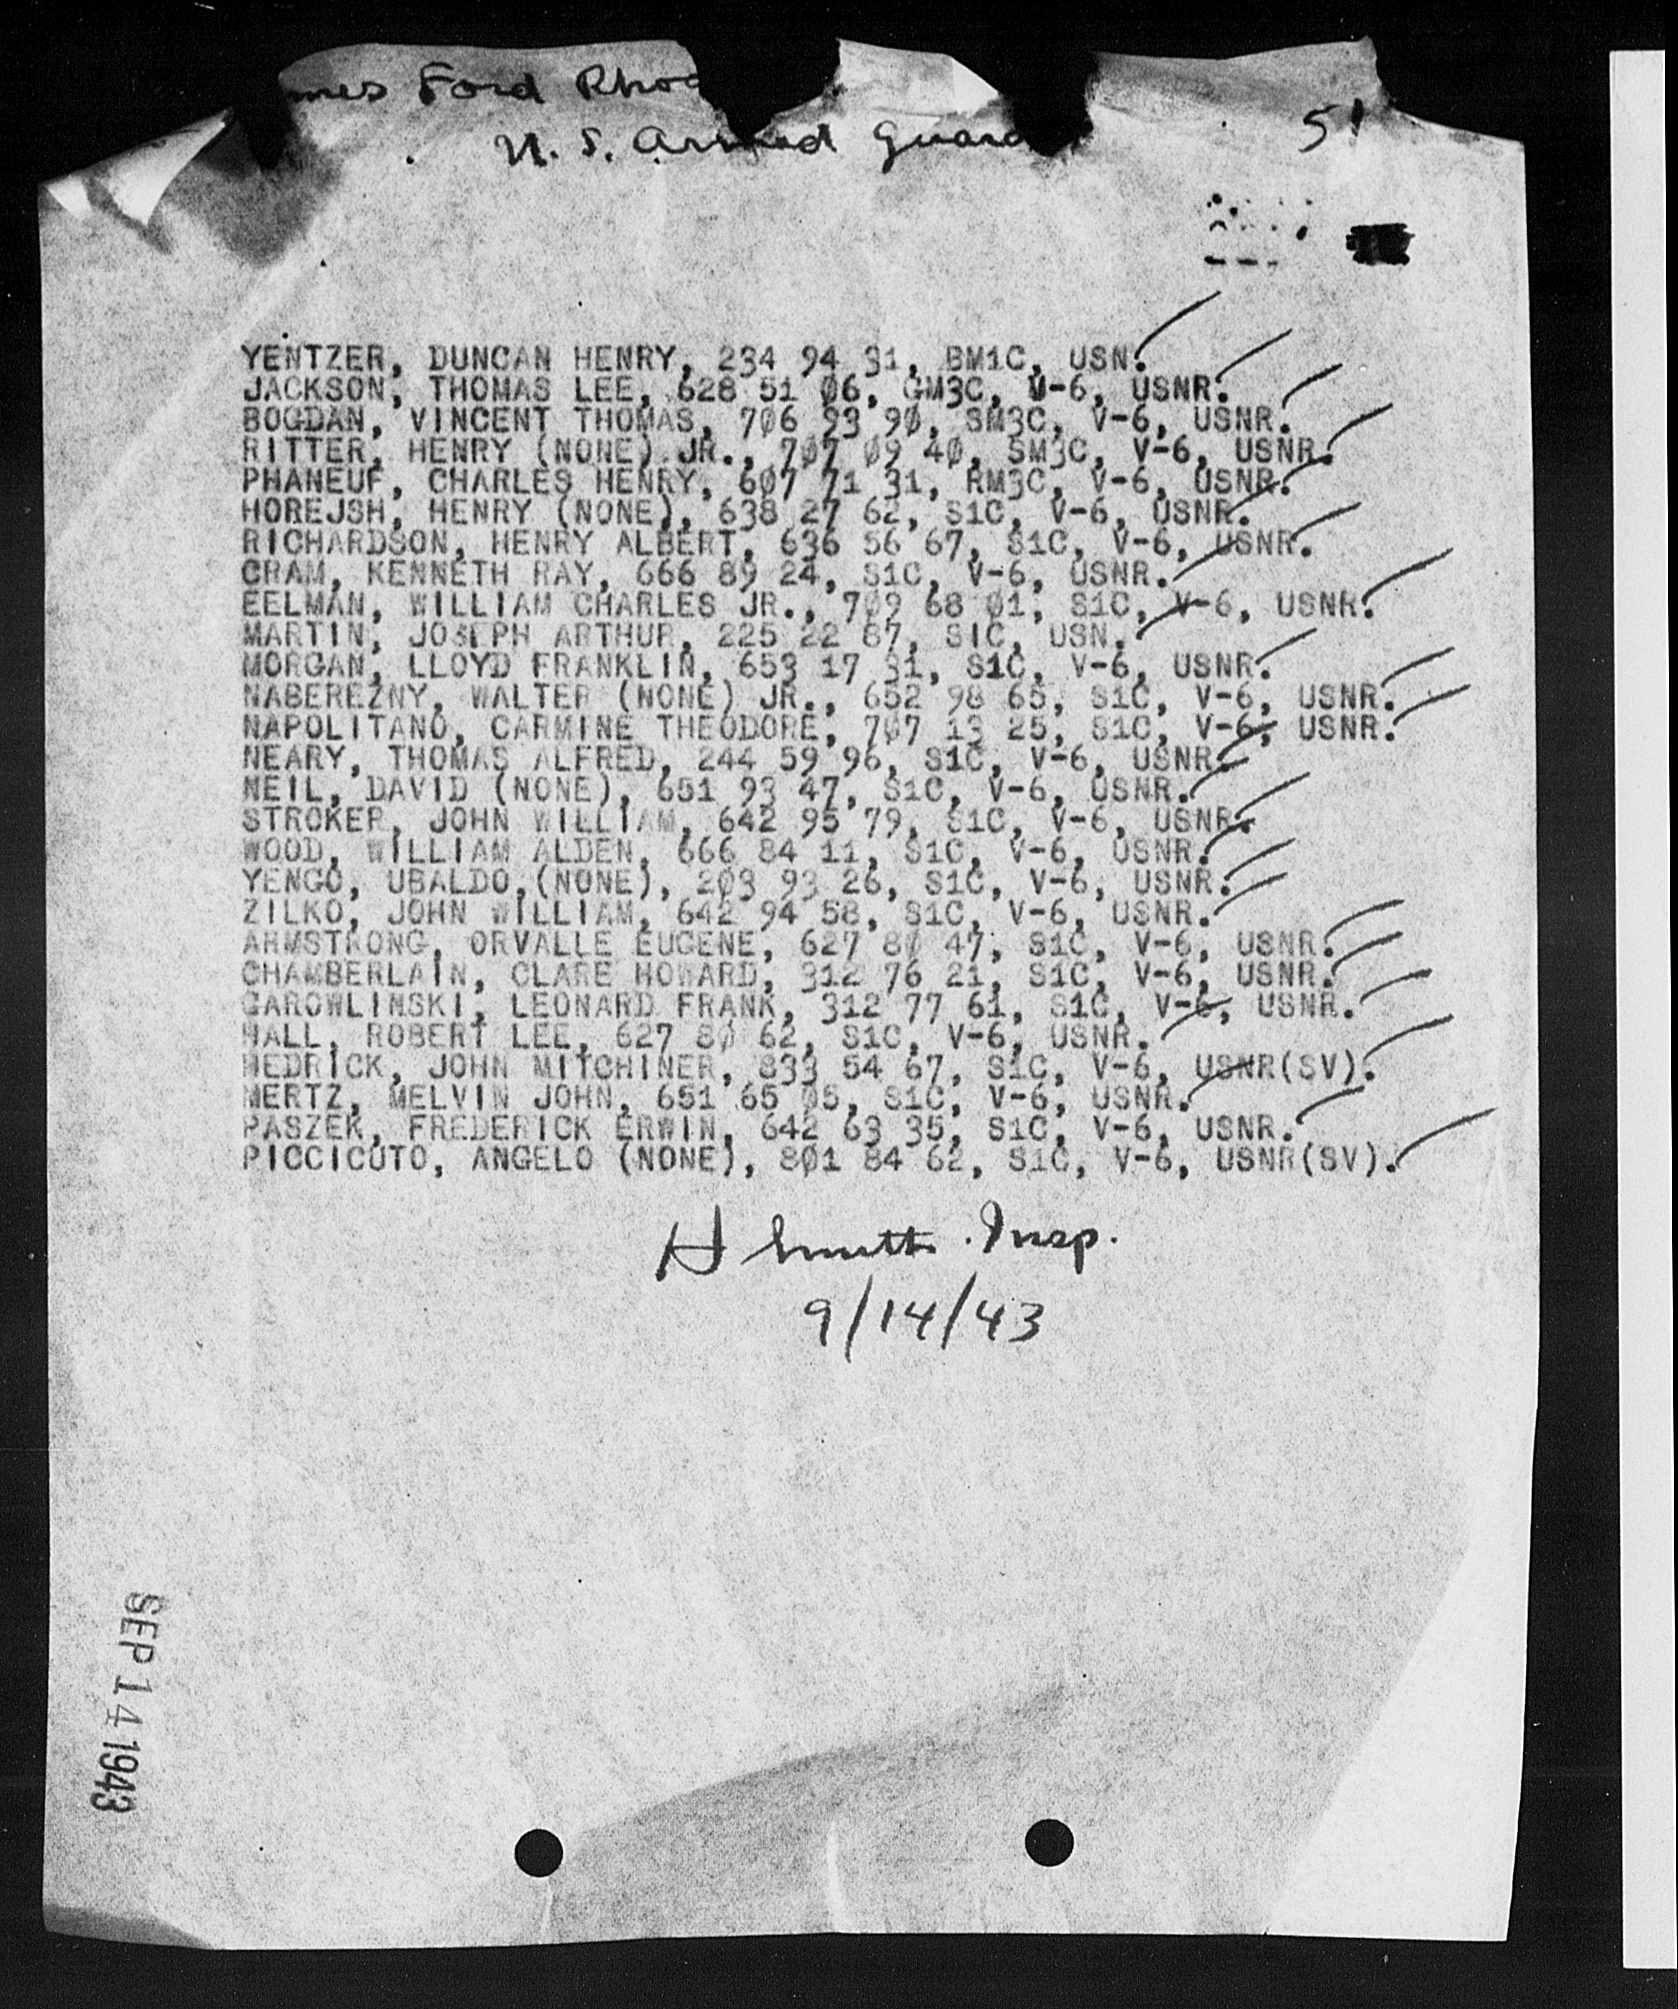 mes Ford Rhod
U. S. Armed Guard
51
YENTZER, DUNCAN HENRY, 234 94 31, BM1C, USN.
JACKSON, THOMAS LEE, 628 51 Ø6, GM3C, V-6, USNR.
BOGDAN, VINCENT THOMAS, 7Ø6 93 9Ø, SM3C, V-6, USNR.
RITTER, HENRY (NONE) JR., 7Ø7 Ø9 4Ø, SM3C, V-6, USNR.
PHANEUF, CHARLES HENRY, 6Ø7 71 31, RM3C, V-6, USNR.
HOREJSH, HENRY (NONE), 638 27 62, S1C, V-6, USNR.
RICHARDSON, HENRY ALBERT, 636 56 67, S1C, V-6, USNR.
CRAM, KENNETH RAY, 666 89 24, S1C, V-6, USNR.
EELMAN, WILLIAM CHARLES JR., 7Ø9 68 Ø1, S1C, V-6, USNR.
MARTIN, JOSEPH ARTHUR, 225 22 87, S1C, USN.
MORGAN, LLOYD FRANKLIN, 653 17 31, S1C, V-6, USNR.
NABEREZNY, WALTER (NONE) JR., 652 98 65, S1C, V-6, USNR.
NAPOLITANO, CARMINE THEODORE, 7Ø7 13 25, S1C, V-6, USNR.
NEARY, THOMAS ALFRED, 244 59 96, S1C, V-6, USNR.
NEIL, DAVID (NONE), 651 93 47, S1C, V-6, USNR.
STROKER, JOHN WILLIAM, 642 95 79, S1C, V-6, USNR.
WOOD, WILLIAM ALDEN, 666 84 11, S1C, V-6, USNR.
YENGO, UBALDO,(NONE), 2Ø3 93 26, S1C, V-6, USNR.
ZILKO, JOHN WILLIAM, 642 94 58, S1C, V-6, USNR.
ARMSTRONG, ORVALLE EUGENE, 627 8Ø 47, S1C, V-6, USNR.
CHAMBERLAIN, CLARE HOWARD, 312 76 21, S1C, V-6, USNR.
GAROWLINSKI, LEONARD FRANK, 312 77 61, S1C, V-6, USNR.
HALL, ROBERT LEE, 627 8Ø 62, S1C, V-6, USNR.
HEDRICK, JOHN MITCHINER, 833 54 67, S1C, V-6, USNR(SV).
MERTZ, MELVIN JOHN, 651 65 Ø5, S1C, V-6, USNR.
PASZEK, FREDERICK ERWIN, 642 63 35, S1C, V-6, USNR.
PICCICUTO, ANGELO (NONE), 8Ø1 84 62, S1C, V-6, USNR(SV).
H Smith. Insp.
9/14/43
SEP 14 1943